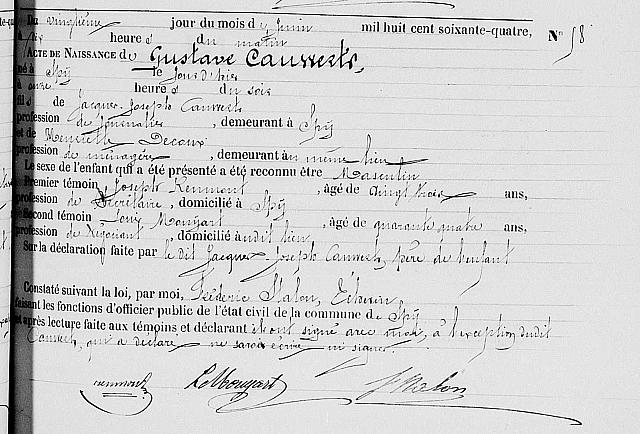 Du vingtième jour du mois de Juin mil huit cent soixante-quatre, N° 58
à dix heures du matin
ACTE DE NAISSANCE de Gustave Cauwerts,
né à Spy le jour d'hier
à onze heures du soir
fils de Jacques Joseph Cauwerts
profession de Journalier, demeurant à Spy
et de Henriette Decoux
profession de ménagère, demeurant au même lieu
Le sexe de l'enfant qui a été présenté a été reconnu être Masculin
Premier témoin Joseph Renmont, âgé de vingt trois ans,
profession de Secrétaire, domicilié à Spy
Second témoin Louis Mouyart, âgé de quarante quatre ans,
profession de Négociant, domicilié audit lieu
Sur la déclaration faite par le dit Jacques Joseph Cauwerts, père de l'enfant
Constaté suivant la loi, par moi, Fréderic Malon, Echevin
faisant les fonctions d'officier public de l'état civil de la commune de Spy
et après lecture faite aux témoins et déclarant ils ont signé avec moi, à l'exception dudit
Cauwerts, qui a déclaré ne savoir écrire ni signer.